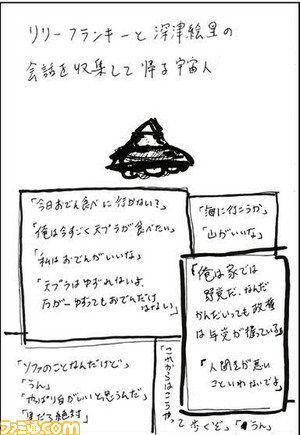 リリーフランキーと深津絵里の
会話を収集して帰る宇宙人
「今日おでん食べに行かない?」
「俺は今すごく天プラが食べたい」
「私はおでんがいいな」
「天プラはゆずれないよ、
万が一ゆずってもおでんだけ
はない」
「海に行こうか」
「山がいいな」
「俺は家では
野党だ、なんだ
かんだいっても政権
は与党が握っている」
「人聞きが悪い
こといわないでよ」
「ソファのことなんだけど」
「うん」
「やっぱり白がいいと思うんだ」
「黒だろ絶対」
「これからはこうやって歩くぞ」
「うん」
ファミ通.com